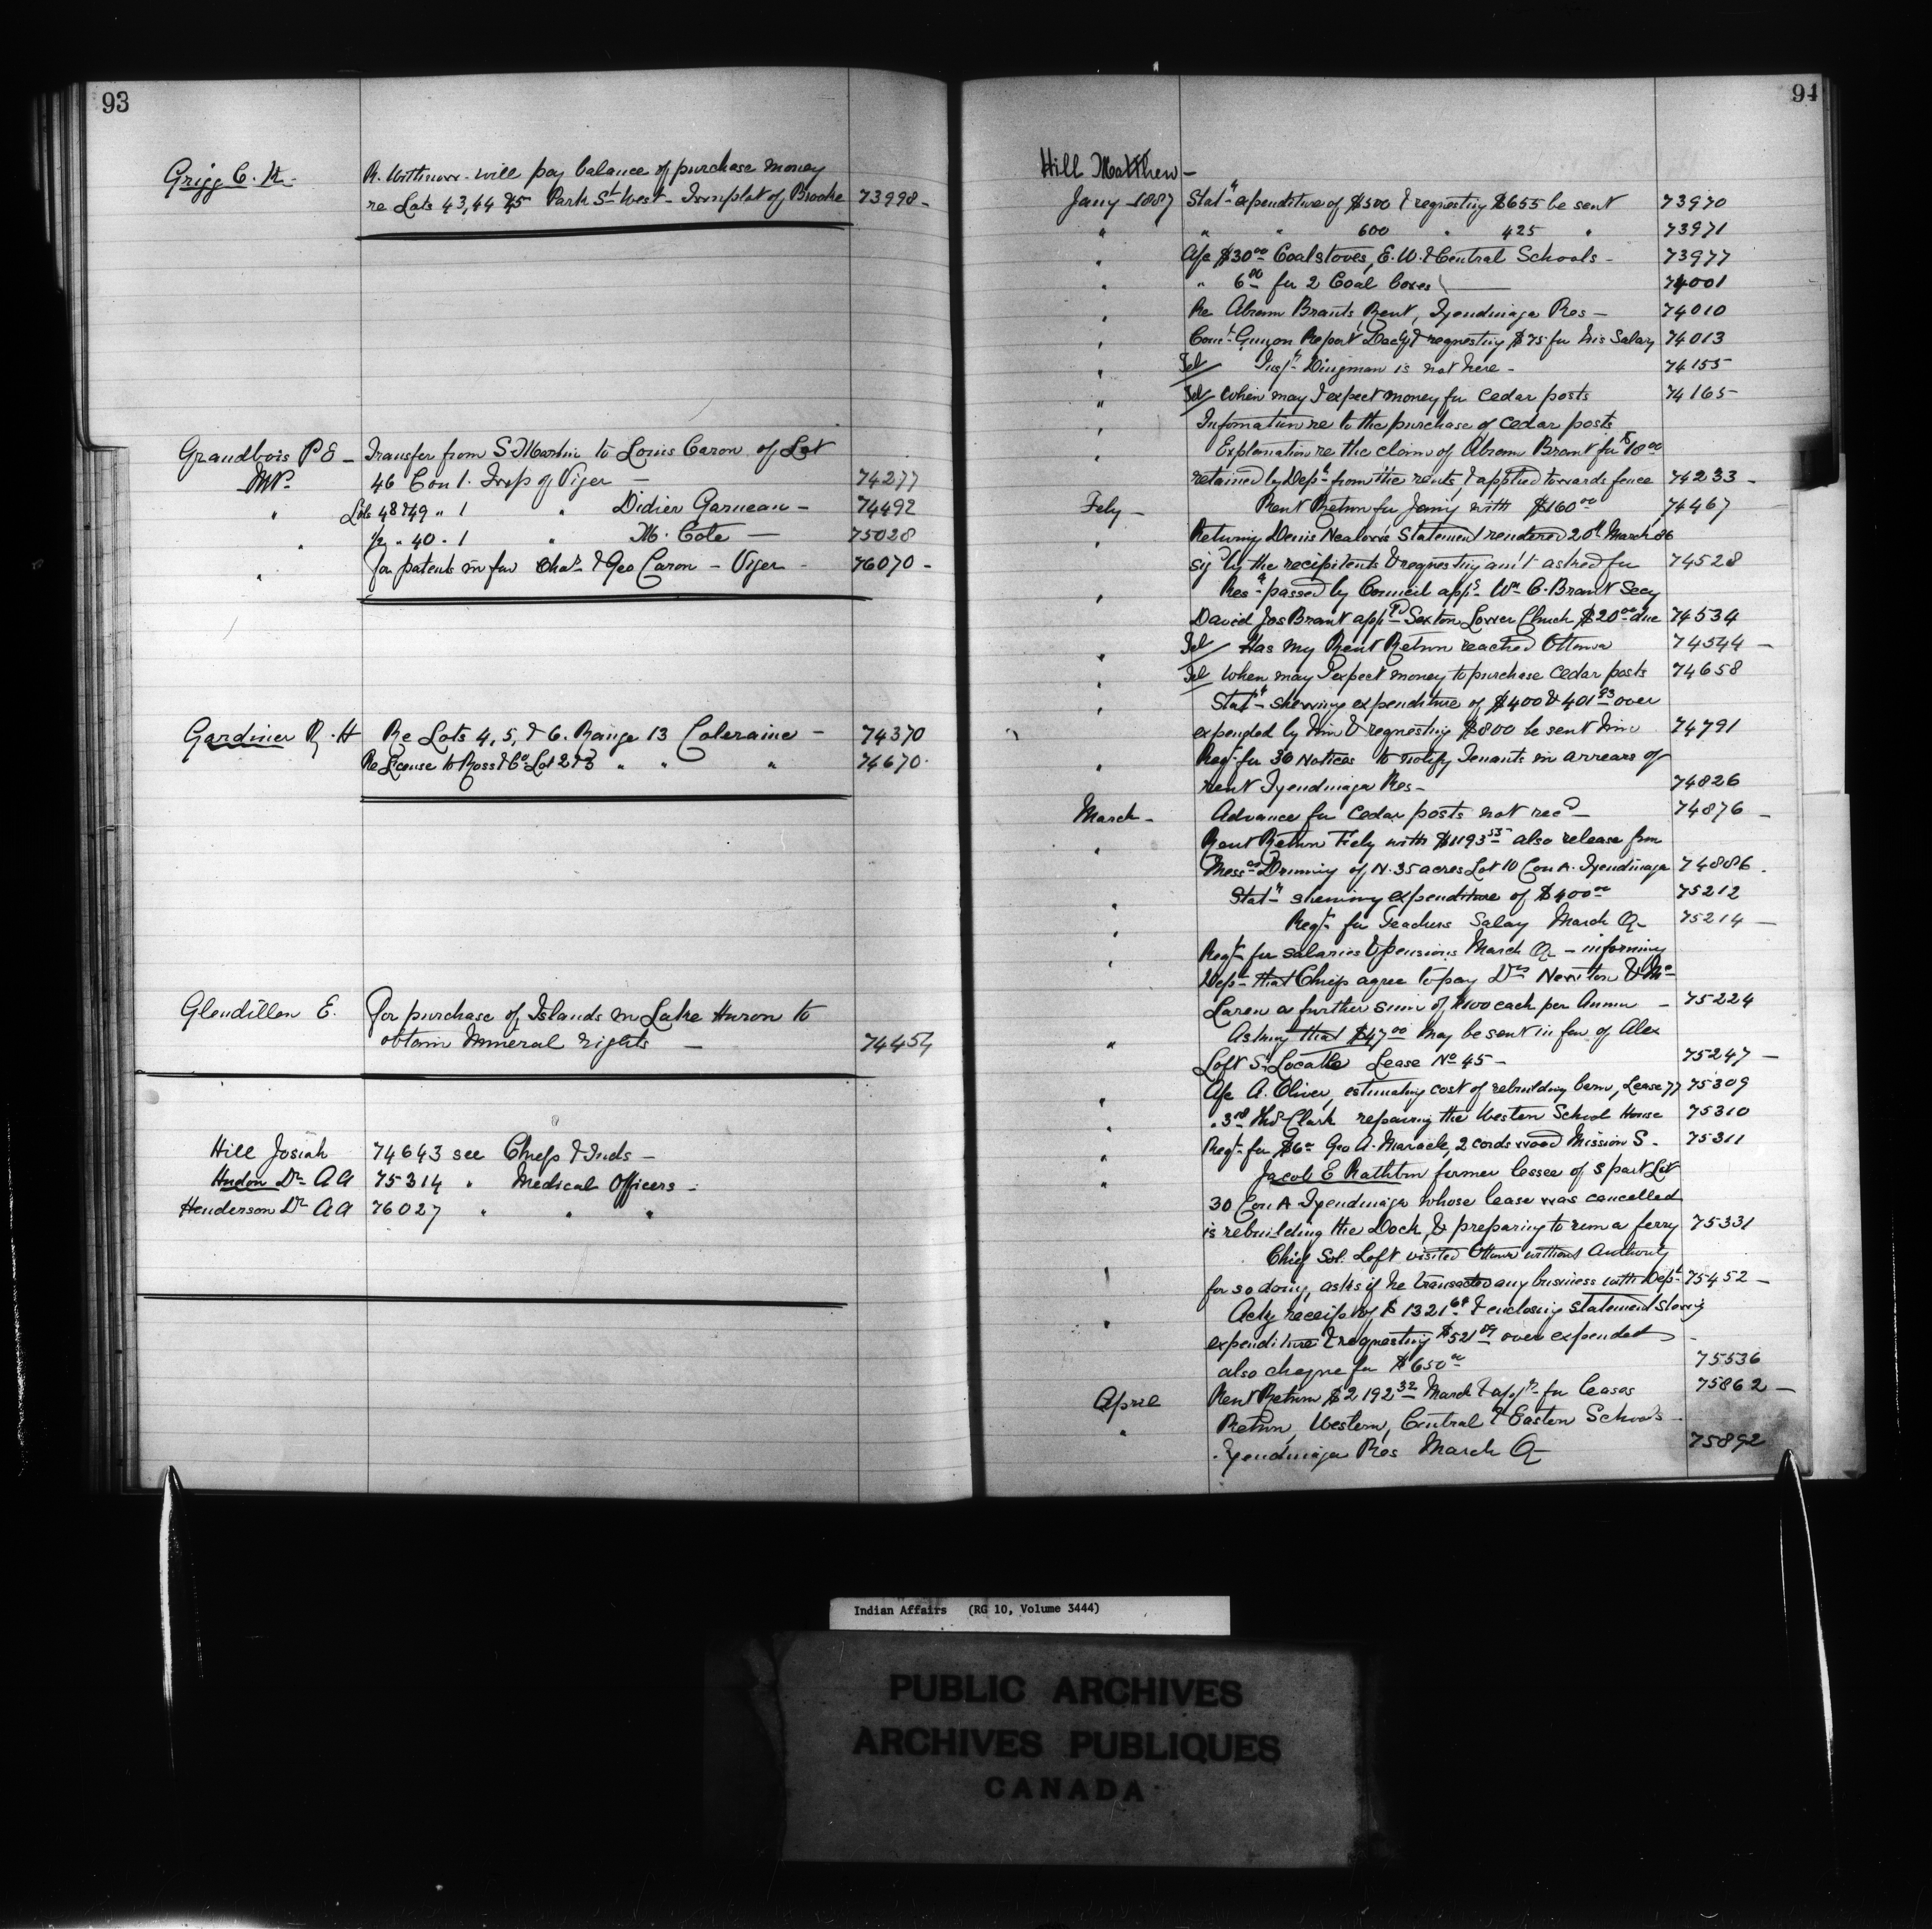 93
Grigg C. K. R. will pay balance of purchase money
re Lots 43, 44 & 45 Park St West - Townplot of Brooke 73998 -
Grandbois P E - Transfer from S. Martin to Louis Caron of Lot
M.P. 46 Con 1. Twp of Viger - 74277
" Lots 48 & 49 " 1 " Didier Garneau - 74492
" 1/2 " 40 " 1 " M. Cote - 75028
" for patents in fav Chas & Geo Caron - Viger - 76070 -
Gardiner R. H Re Lots 4, 5, & 6. Range 13 Coleraine - 74370
Re License to Ross & Co Lot 2 & 3 " " " 74670
Glendillen E. For purchase of Islands in Lake Huron to
obtain Mineral rights - 74454
Hill Josiah 74643 see Chiefs & Inds -
Hudon Dr A A 75314 " Medical Officers -
Henderson Dr A A 76027 " " "
94
Hill Matthew -
Jany 1887 Statt expenditure of $500 & requesting $655 be sent 73970
" " " 600 " 425 " 73971
" A/c $30 00 Coal stoves, E. W. & Central Schools - 73977
" " 6 00 for 2 Coal boxes 74001
" Re Abram Brants, Rent, Tyendinaga Res - 74010
" Report Decr & requesting $75 for his Salary 74013
" Tel Inspr Dingman is not here - 74155
" Tel When may I expect money for cedar posts 74165
" Information re to the purchase of cedar posts
" Explanation re the claim of Abram Brant for $18 00
retained by Dept from the rents, & applied towards fence 74233 -
Feby - Rent Return for Jany with $160 00 74467
" Returning Denis Nealon's Statement rendered 20th March 86
sigd by the recipients & requesting amt asked for 74528
" Resn passed by Council appg Wm C. Brant Secy
David Jos Brant appd Sexton Lower Church $20 00 due 74534
" Tel Has my Rent Return reached Ottawa 74544 -
" Tel When may I expect money to purchase cedar posts 74658
" Statt shewing expenditure of $400 & 401 93 over
expended by him & requesting $800 be sent him 74791
" Reqt for 30 Notices to notify Tenants in arrears of
rent Tyendinaga Res - 74826
March - Advance for cedar posts not recd - 74876 -
" Rent Return Feby with $1193 53 also release from
Messrs of N. 35 acres Lot 10 Con A. Tyendinaga 74886.
" Statt shewing expenditure of $400 00 75212
" Reqt for Teachers Salary March Qr 75214 -
" Reqt for salaries & pensions March Qr - informing
Dept that Chiefs agree to pay Drs Newton & Mc
Laren a further sum of $100 each per Annum - 75224
" Asking that $47 00 may be sent in fav of Alex
Loft Sr Locatee Lease No 45 - 75247 -
" A/c A. Oliver, estimating cost of rebuilding barn, Lease 77 75309
" " Clark repairing the Western School House 75310
" Reqt for $6 00 Geo A. Maracle, 2 cords wood Mission S - 75311
" Jacob E Rathbun former lessee of S part Lot
30 Con A Tyendinaga whose lease was cancelled
is rebuilding the Dock, & preparing to run a ferry 75331
Chief Sol. Loft visited Ottawa without Authority
for so doing, asks if he transacted any business with Dept 75452 -
" Ackg receipt of $1321 68 & enclosing statement showing
expenditure & requesting $521 09 over expended -
also cheque for $650 00 75536
April Rent Return $2192 32 March & appn for leases 75862 -
" Return, Western, Central & Eastern Schools -
Tyendinaga Res March Qr 75892
Indian Affairs (RG 10, Volume 3444)
PUBLIC ARCHIVES
ARCHIVES PUBLIQUES
CANADA